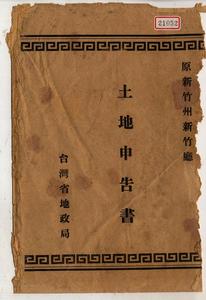 21052
原新竹州新竹廳
土地申告書
台灣省地政局